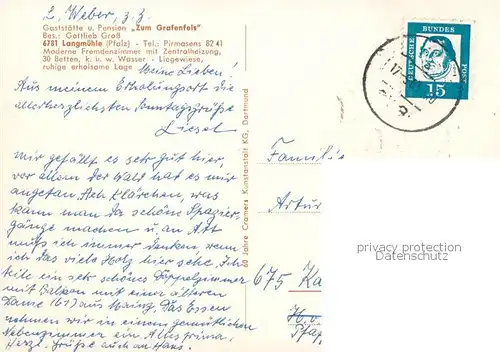 L. Weber, z. Z.
Gaststätte u. Pension „Zum Grafenfels"
Bes.: Gottlieb Groß
6781 Langmühle (Pfalz) - Tel.: Pirmasens 82 41
Moderne Fremdenzimmer mit Zentralheizung,
30 Betten, k. u. w. Wasser - Liegewiese,
ruhige erholsame Lage
Meine Lieben!
Aus meinem Erholungsort die
allerherzlichsten Sonntagsgrüße
Liesel
Mir gefällt es sehr gut hier,
vor allem der Wald hat es mir
angetan. Ach Klärchen, was
kann man da schöne Spazier-
gänge machen u. an
muß ich immer denken, wenn
ich das viele Holz hier sehe. Ich
teile ein sehr schönes Doppelzimmer
mit Balkon mit einer älteren
Dame (61) aus Mainz. Das Essen
nehmen wir in einem gemütlichen
Nebenzimmer ein. Alles prima.
Herzl. Grüße auch an Hans.
60 Jahre Cramers Kunstanstalt KG, Dortmund
DEUTSCHE
BUNDES
POST
15
Familie
Artur
675 Ka
privacy protection
VERANDAPRIVAT.DE